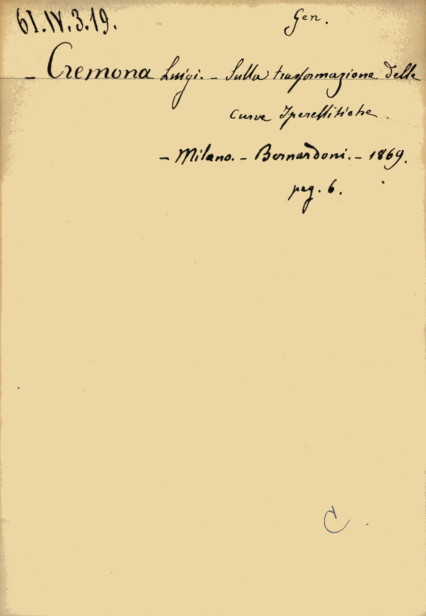 61.IV.3.19.
Gen.
- Cremona Luigi. - Sulla trasformazione delle
curve Iperellitiche.
- Milano. - Bernardoni. - 1869.
pag. 6.
C